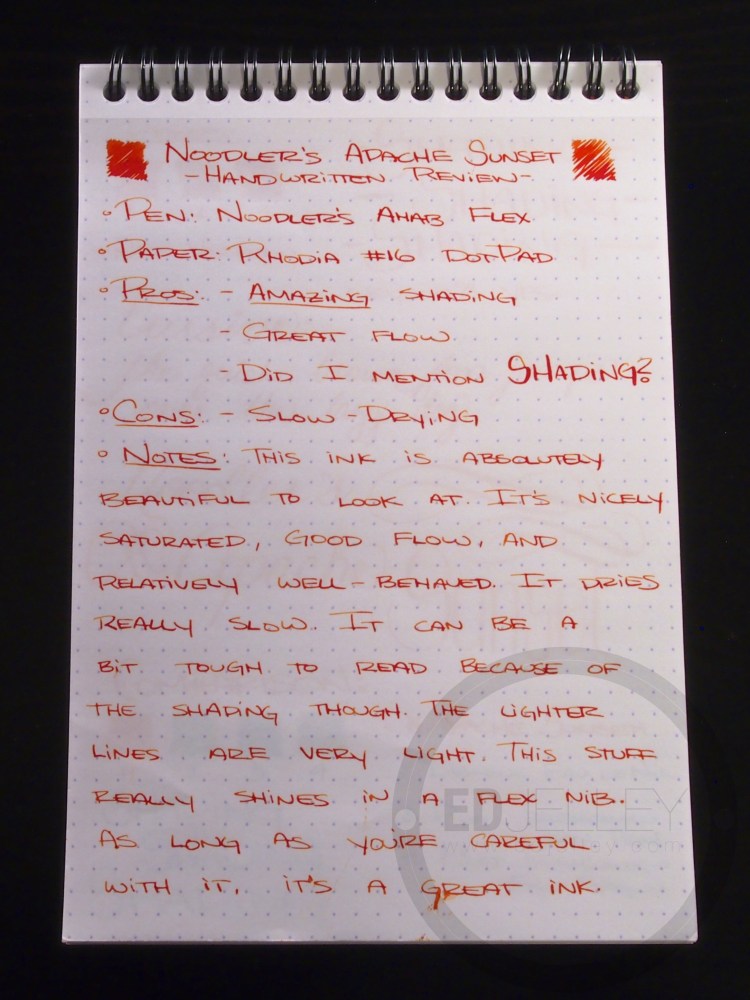 NOODLER'S APACHE SUNSET
-HANDWRITTEN REVIEW-
• PEN: NOODLER'S AHAB FLEX
• PAPER: RHODIA #16 DOTPAD
• PROS: - AMAZING SHADING
- GREAT FLOW
- DID I MENTION SHADING?
• CONS: - SLOW-DRYING
• NOTES: THIS INK IS ABSOLUTELY
BEAUTIFUL TO LOOK AT. IT'S NICELY
SATURATED, GOOD FLOW, AND
RELATIVELY WELL-BEHAVED. IT DRIES
REALLY SLOW. IT CAN BE A
BIT TOUGH TO READ BECAUSE OF
THE SHADING THOUGH. THE LIGHTER
LINES ARE VERY LIGHT. THIS STUFF
REALLY SHINES IN A FLEX NIB.
EDJELLEY
AS LONG AS YOU'RE CAREFUL
WITH IT, IT'S A GREAT INK.